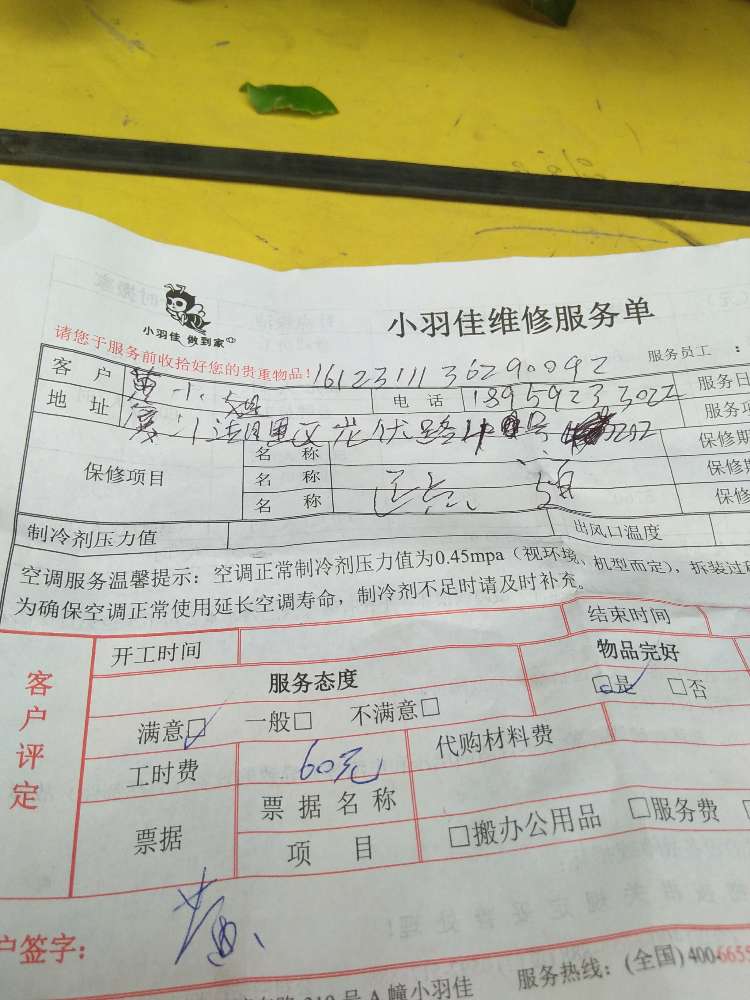 小羽佳 做到家
小羽佳维修服务单
请您于服务前收拾好您的贵重物品！
服务员工：
客户 黄小姐 1612311136290092
电话 18959233022
服务日
地址 路 号
服务项
保修项目
名称
名称
名称
保修期
保修期
保修
制冷剂压力值
出风口温度
空调服务温馨提示：空调正常制冷剂压力值为0.45mpa（视环境、机型而定），拆装过
为确保空调正常使用延长空调寿命，制冷剂不足时请及时补充。
客户评定
开工时间
结束时间
服务态度
物品完好
满意☑ 一般□ 不满意□
☑是 □否
工时费 60元
代购材料费
票据
票据名称
项目
□搬办公用品 □服务费
户签字：黄
号A幢小羽佳
服务热线：（全国）400-6655